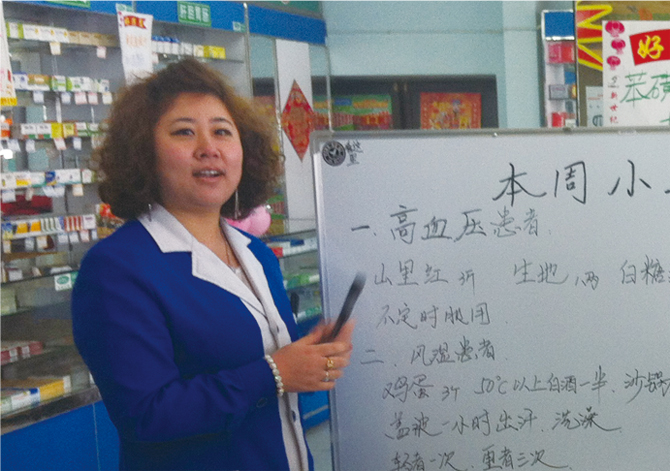 本周小
一.高血压患者.
山里红3斤 生地1两 白糖
不定时服用
二、风湿患者
鸡蛋3个 50℃以上白酒一半.沙锅
盖被一小时出汗.洗澡
轻者一次.重者三次
好
苯磺